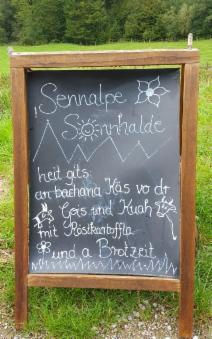 Sennalpe
Sonnhalde
heit gits:
an bachana Käs vo dr
Geis und Kuah
mit Röstkartoffla
und a Brotzeit